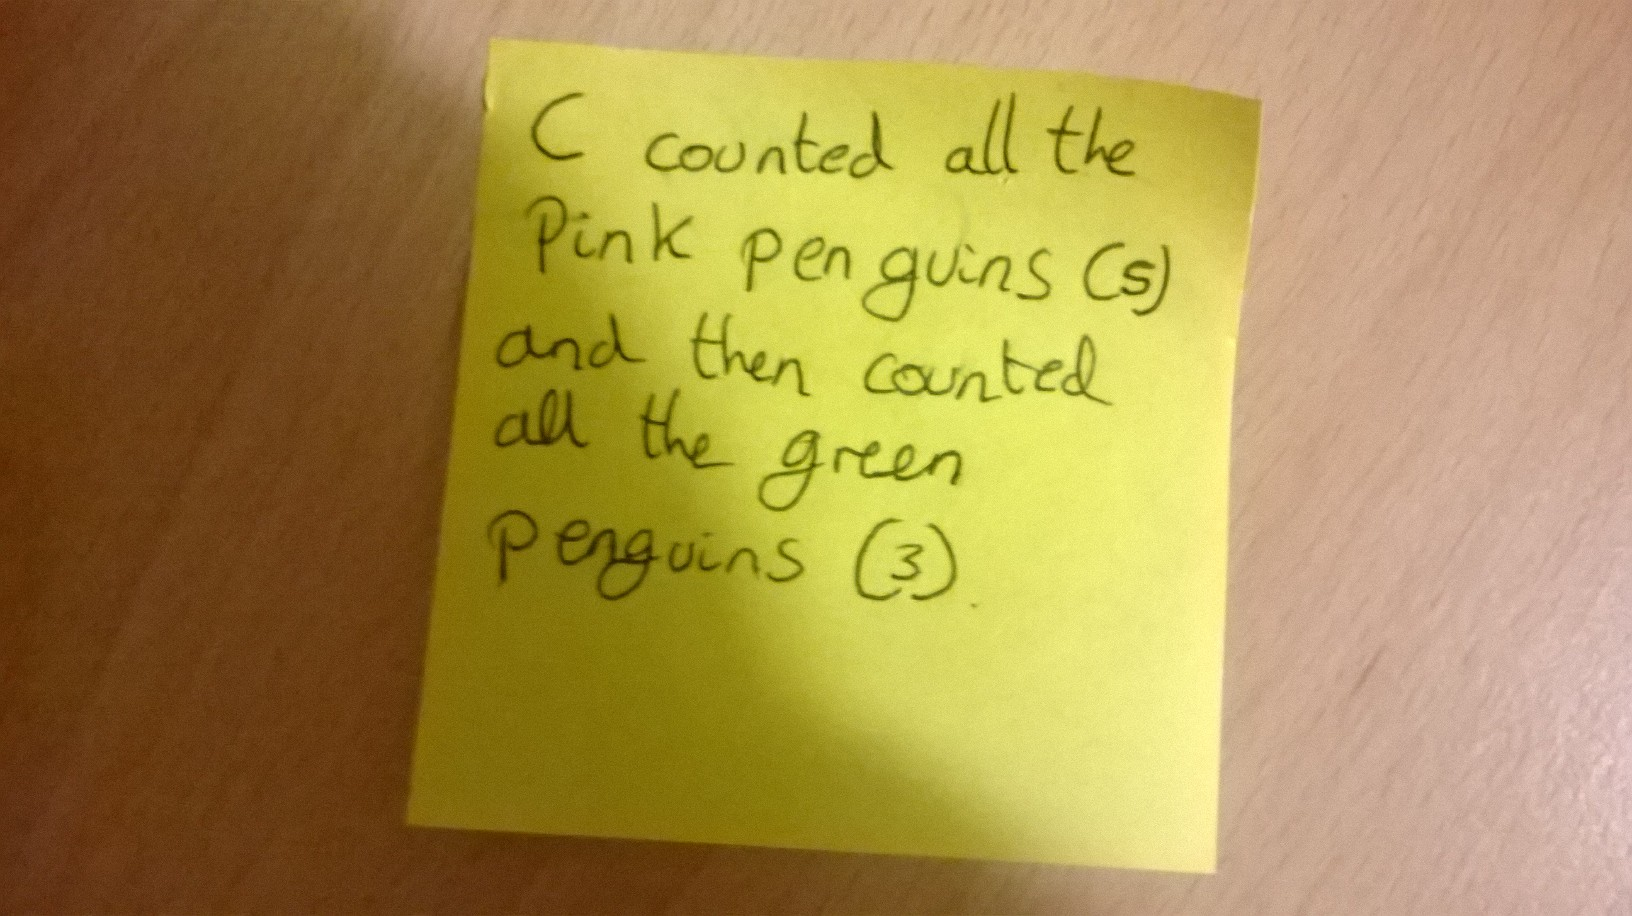 C counted all the
Pink penguins (5)
and then counted
all the green
penguins (3).